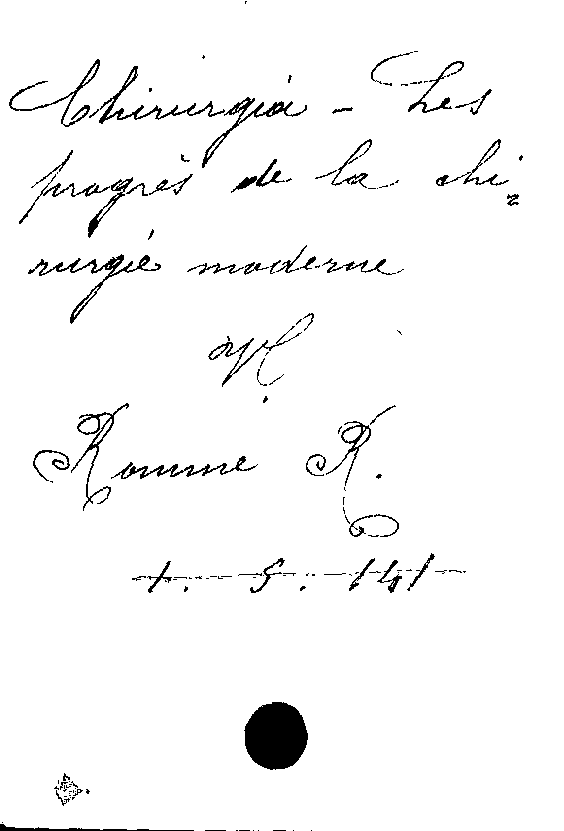 Chirurgia - Les
progrès de la chi=
rurgie moderne
V.
Romme R.
1. 5. 141